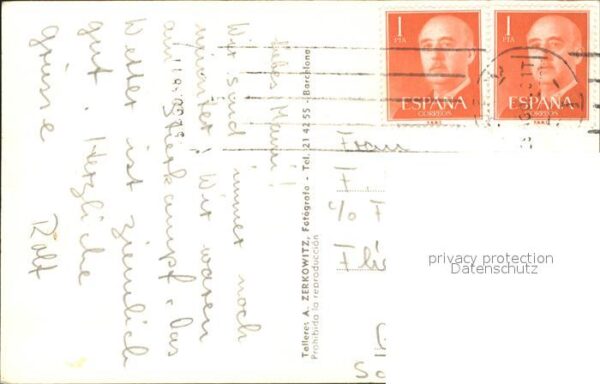 1
PTA
ESPAÑA
CORREOS
1
PTA
ESPAÑA
CORREOS
Liebes Mausi!
Wir sind immer noch
Wir waren
am Stierkampf. Das
Wetter ist ziemlich
gut. Herzliche
grüsse
Rolf
Talleres A. ZERKOWITZ, Fotógrafo - Tel. 21 42 55 - Barcelona
Prohibida la reproducción
F
c/o F
privacy protection
Datenschutz